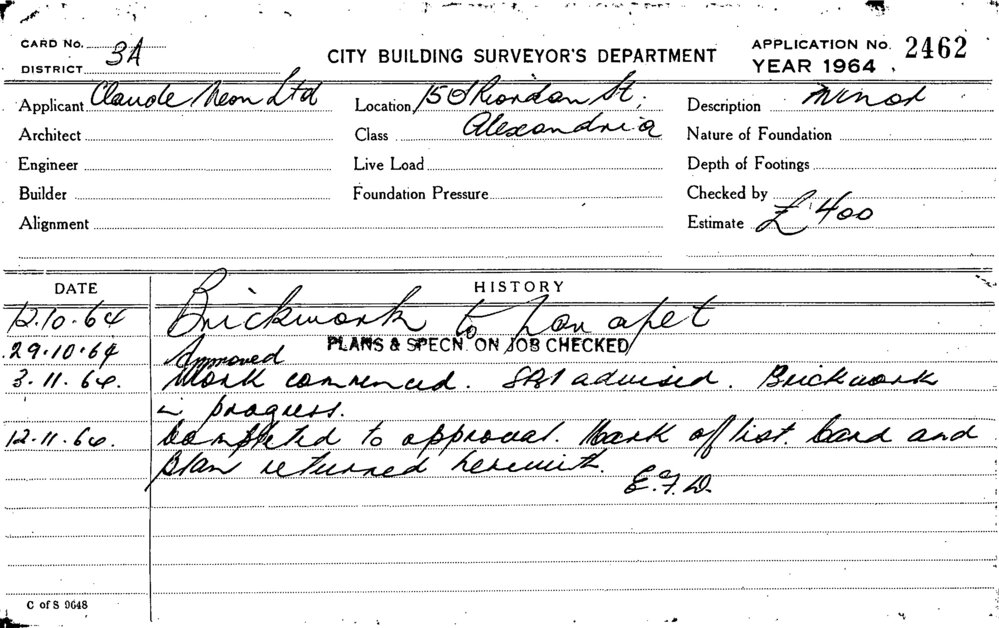 CARD No.
3A
DISTRICT
CITY BUILDING SURVEYOR'S DEPARTMENT
APPLICATION No. 2462
YEAR 1964
Applicant Claude Neon Ltd
Location 15 O'Riordan St,
Description Minor
Architect
Class Alexandria
Nature of Foundation
Engineer
Live Load
Depth of Footings
Builder
Foundation Pressure
Checked by
Alignment
Estimate £400
DATE HISTORY
12.10.64 Brickwork to parapet
29.10.64 Approved PLANS & SPECN. ON JOB CHECKED
3.11.64. Work commenced. advised. Brickwork
in progress.
12.11.64. Completed to approval. Mark off list. Card and
Plan returned herewith.
E.F.D.
C of S 9648